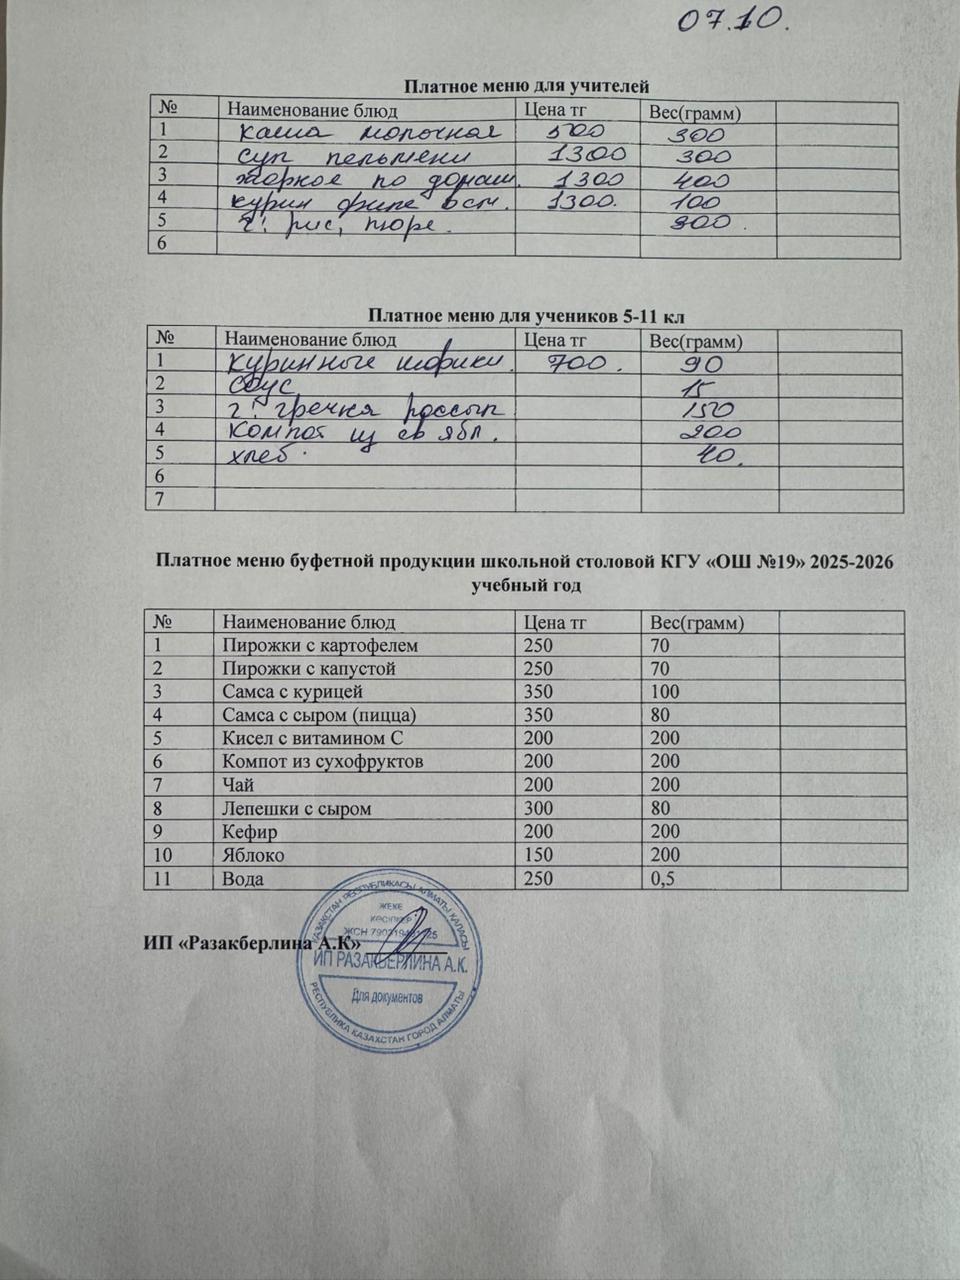 07.10.
Платное меню для учителей
№ Наименование блюд Цена тг Вес(грамм)
1 каша молочная 500 300
2 суп пельмени 1300 300
3 жаркое по домаш. 1300 400
4 курин филе в см. 1300. 100
5 г! рис, пюре. 300.
6
Платное меню для учеников 5-11 кл
№ Наименование блюд Цена тг Вес(грамм)
1 куринные шарики. 700. 90
2 соус 15
3 г! гречка рассып 150
4 компот из св ябл. 200
5 хлеб. 40.
6
7
Платное меню буфетной продукции школьной столовой КГУ «ОШ №19» 2025-2026
учебный год
№ Наименование блюд Цена тг Вес(грамм)
1 Пирожки с картофелем 250 70
2 Пирожки с капустой 250 70
3 Самса с курицей 350 100
4 Самса с сыром (пицца) 350 80
5 Кисел с витамином С 200 200
6 Компот из сухофруктов 200 200
7 Чай 200 200
8 Лепешки с сыром 300 80
9 Кефир 200 200
10 Яблоко 150 200
11 Вода 250 0,5
ИП «Разакберлина А.К»
ҚАЗАҚСТАН РЕСПУБЛИКАСЫ АЛМАТЫ ҚАЛАСЫ
ЖЕКЕ
КӘСІПКЕР
ЖСН
ИП РАЗАКБЕРЛИНА А.К.
Для документов
РЕСПУБЛИКА КАЗАХСТАН ГОРОД АЛМАТЫ